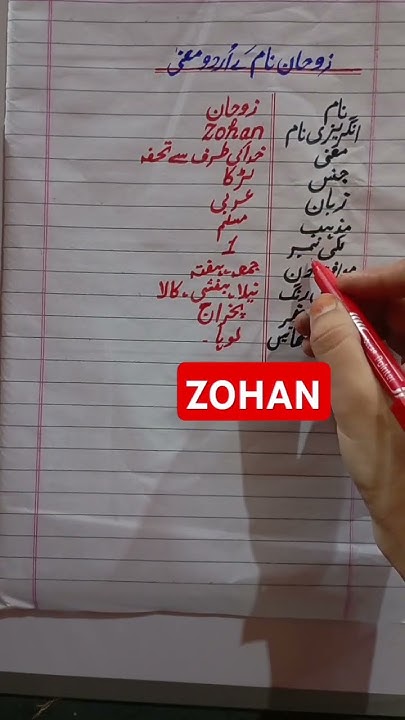 زوحان نام َر اُردو معنیٰ
نام زوحان
انگریزی نام Zohan
معنی خدا کی طرف سے تحفہ
جنس لڑکا
زبان عربی
مذہب مسلم
لکی نمبر 1
دن جمعہ۔ ہفتہ
رنگ نیلا۔ بنفشی۔ کالا
پتھر پکھراج
لوہا۔
ZOHAN